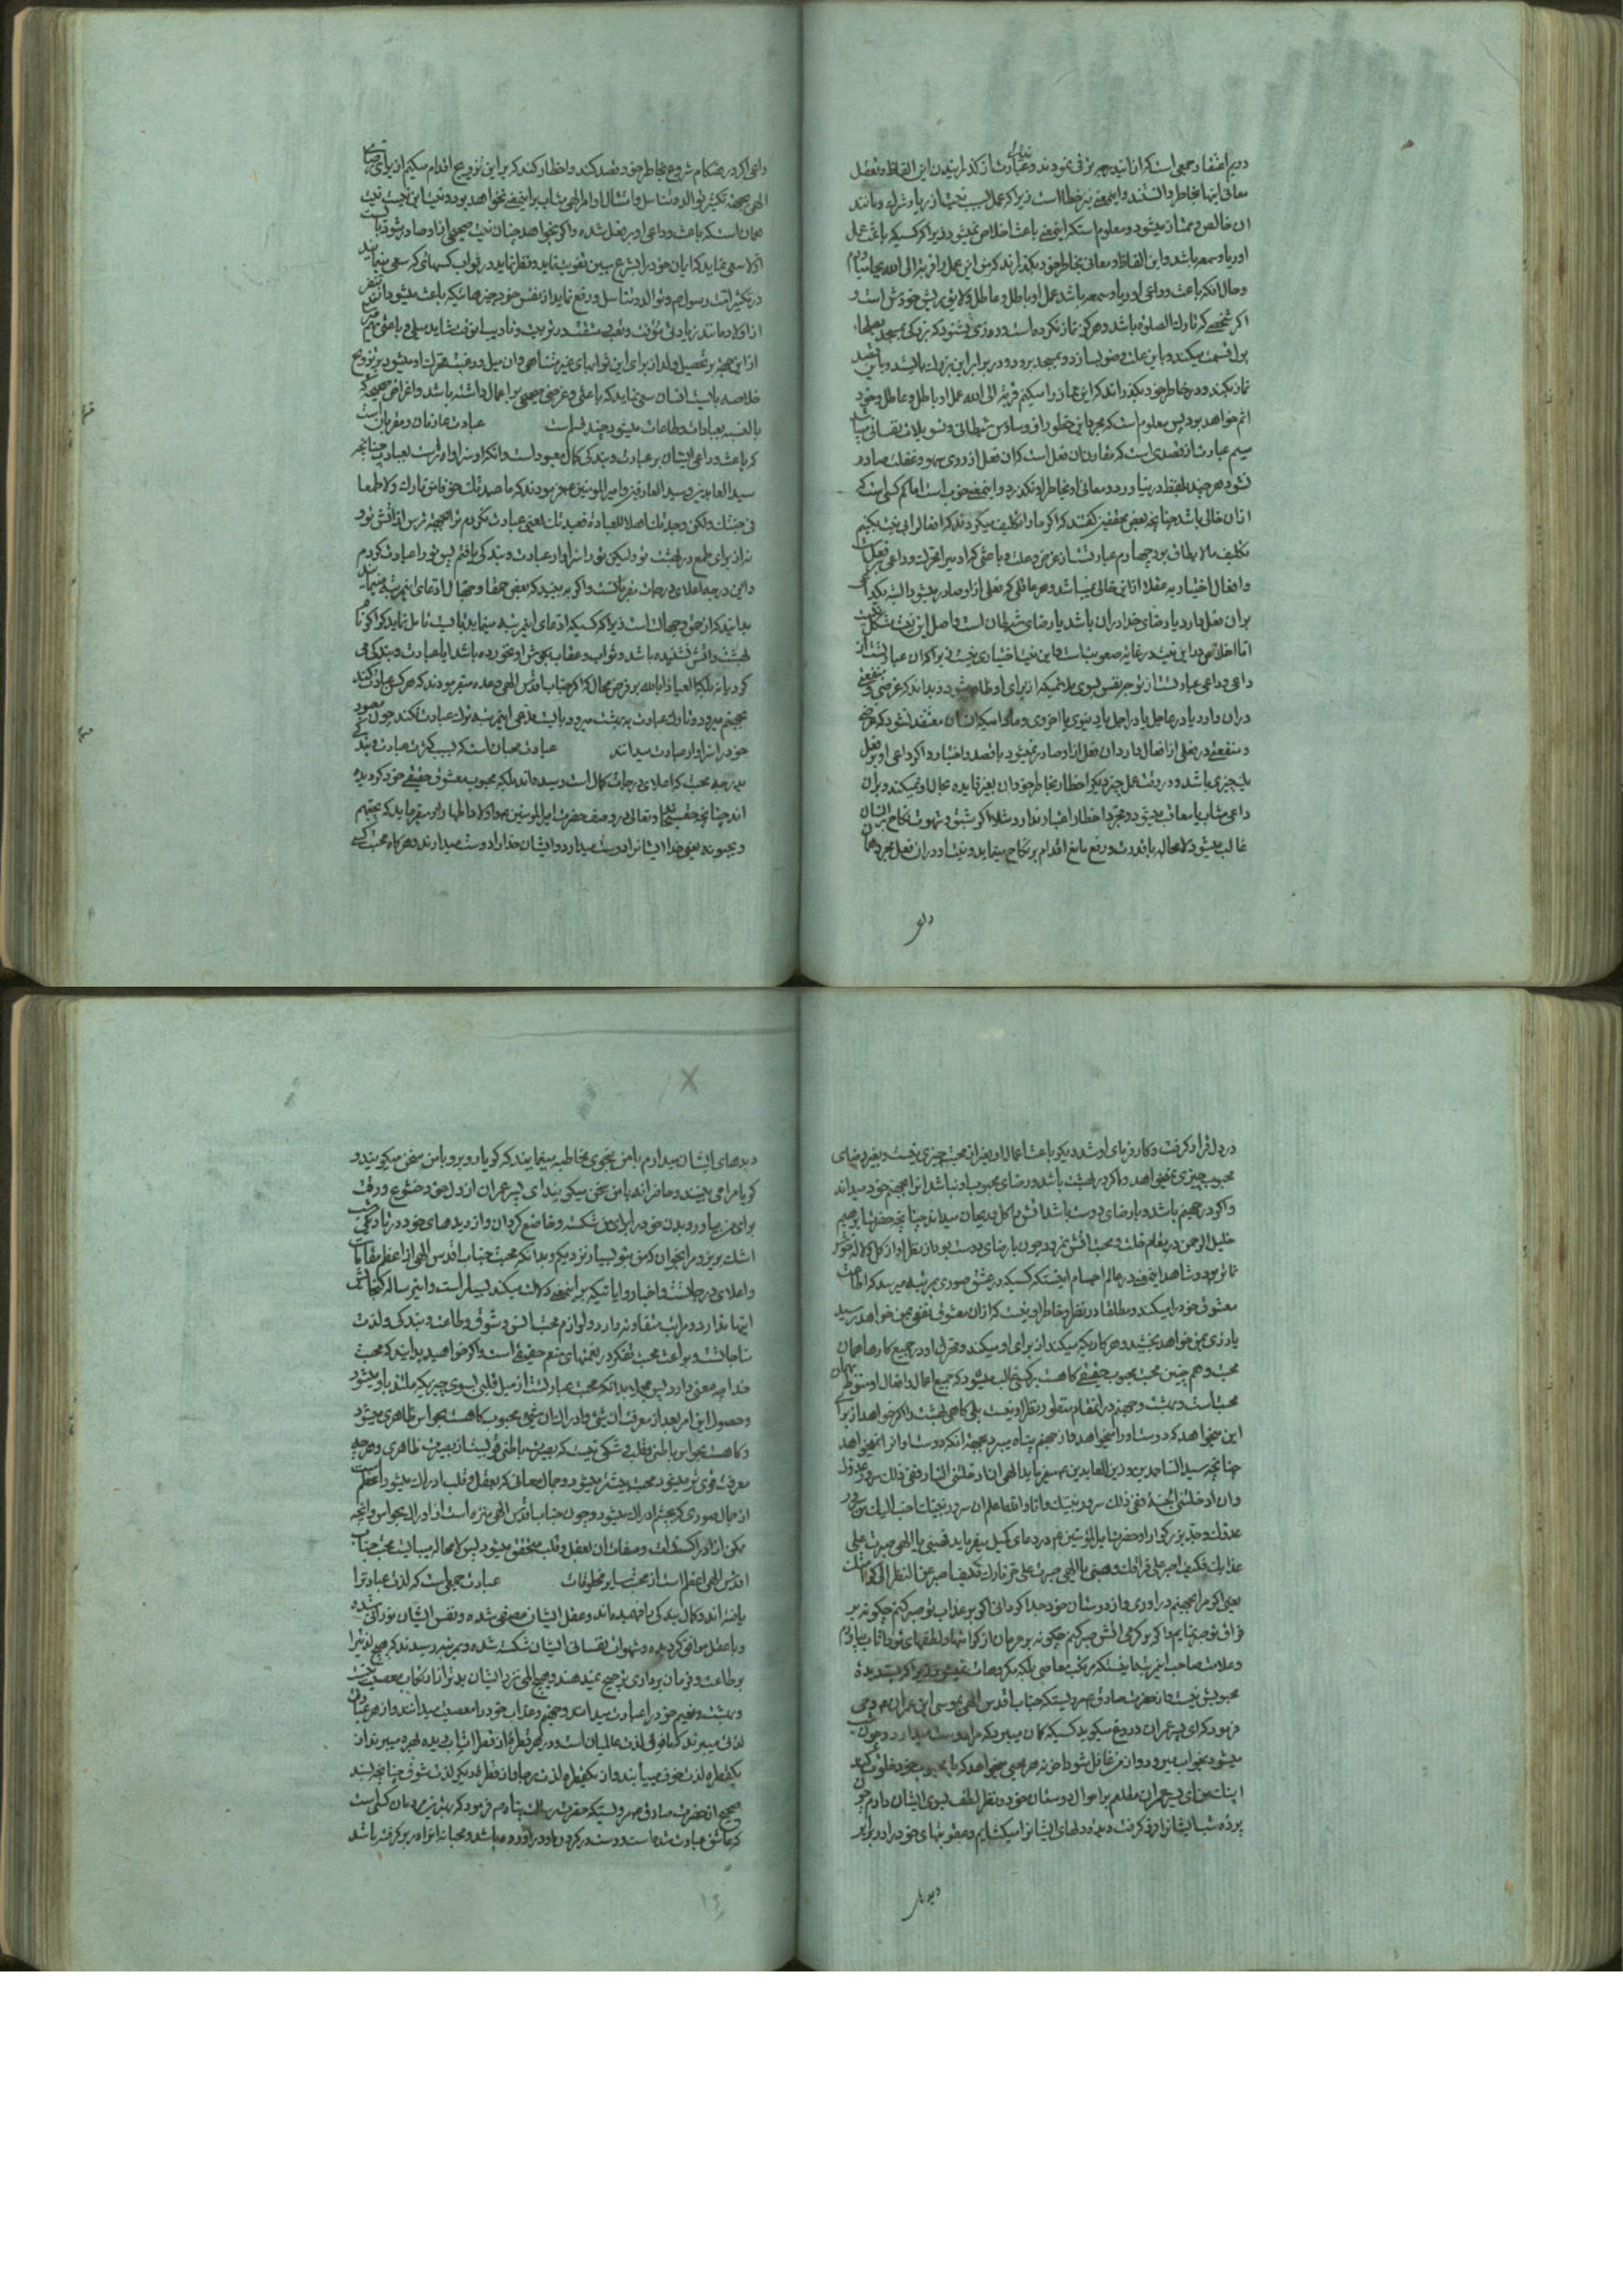 دویم اعتقاد جمعی است که از این مرتبه ترقی نمودند و عبادت از گذرانیدن این الفاظ و تعقل
معانی اینها بخاطر دانستند و این معنی نیز خطا است زیرا که عمل بسبب نیت از ریا و شرک و مانند
آن خالص و ممتاز میشود و معلوم است که این معنی باعث اخلاص نمیشود زیرا که کسیکه باعث عمل
او ریا و سمعه باشد و این الفاظ و معانی بخاطر خود بگذراند که من این عمل را قربة الی الله بجا میاورم
و حال آنکه باعث و داعی او ریا و سمعه باشد عمل او باطل و عاطل و لایق بریش خودش است و
اگر شخصی که تارک الصلوة باشد و هرگز نماز نکرده است و روزی بشنود که بزرگی بمسجد
پول قسمت میکند و باین علت وضو بسازد و بمسجد برود و در برابر این بزرگ بایستد و باین قصد
نماز بکند و در خاطر خود بگذراند که این نماز را میکنم قربة الی الله عمل او باطل و عاطل و خود
آثم خواهد بود پس معلوم است که مجرد این خطورات وساوس شیطانی و تسویلات نفسانی میباشد
سیم عبارت از قصدی است که مقارن آن فعل است که آن فعل از روی سهو و غفلت صادر
نشود هر چند بلفظ در نیاورد و معانی او بخاطر او نگذرد و این معنی خوب است اما کم کسی است که
از آن خالی باشد چنانچه بعض محققین گفتند که اگر ما را تکلیف میکردند که افعال را بی نیت بکنیم
تکلیف مالایطاق بود چهارم عبارت از غرض و علت و باعثی که او میرا محرک و داعی بر فعل است
و افعال اختیاریه عقلا از این خالی نمیباشد و هر عاقلی که فعلی از او صادر میشود البته یکداعی
بر آن فعل دارد یا رضای خدا در آن باشد یا رضای شیطان است و اصل این نیت مشکل نیست
اما اخلاص در این نیت در غایة صعوبت است و این نیت اختیاری نیست زیرا که آن عبارت از
داعی و داعی عبارت از توجه نفس بسوی بدنمیکه از برای او ظاهر میشود و بداند که غرضی و منفعتی
در آن دارد یا در عاجل یا در آجل یا دنیوی یا اخروی و مادامیکه انسان معتقد نشود که غرض
و منفعتی در فعلی از افعال دارد آن فعل از او صادر نمیشود با قصد و اختیار و اگر داعی او بر فعل
یک چیزی باشد و در وقت عمل چیز دیگر احظار بخاطر خود آن بغیر فایده بحال او نمیکند و بر آن
داعی مثاب یا معاقب میشود و مجرد احظار اعتبار ندارد مثلا اگر شبق و شهوت نکاح بر انسان
غالب میشود لامحاله با قدرت و رفع مانع اقدام بر نکاح مینماید و نیت او در آن فعل مجرد همان
داعی
داعی اگر در هنگام شروع بخاطر خود قصد کند و احظار کند که بر این تزویج اقدام میکنم از برای رضای
الهی بجهة تکثیر توالد و تناسل و امتثال اوامر الهی مثاب بر این معنی نخواهد بود و نیت این نیت نیست
همان است که باعث و داعی او بر فعل شده و اگر بخواهد چنان نیت صحیحی از او صادر شود بایست
اولا سعی نماید که ایمان خود را بشرع مبین تقویت نماید و نظر نماید در ثواب کسهائی که سعی مینماید
در تکثیر امت رسول ص و توالد و تناسل و رفع نماید از نفس خود چیزهائیکه باعث میشود از تنفر
از اولاد مانند زیادتی مؤونت و تعب و مشقت در تربیت و تادیب این وقت شاید میلی و باعثی بهم رسد
از این جهة بر تحصیل ولد از برای این ثوابهای غیر متناهی و آن میل و رغبت محرک او میشود بر تزویج
خلاصه بایست انسان سعی نماید که باعثی و غرضی صحیحی بر اعمال داشته باشد و اغراض صحیحه که
بالنسبه بعبادات و طاعات میشود چند قسم است عبادت عارفان و مقربان است
که باعث و داعی ایشان بر عبادت و بندگی کمال معبود است و آنکه او سزاوار پرستش است بعبادت چنانچه
سید العابدین و سید العارفین و امیر المومنین ع میفرمودند که ما عبدتک خوفا من نارک و لا طمعا
فی جنتک ولکن وجدتک اهلا للعبادة فعبدتک یعنی عبادت نکردم ترا بجهة ترس از آتش تو و
نه از برای طمع در بهشت تو ولیکن تو را سزاوار عبادت و بندگی یافتم پس تو را عبادت کردم
و این درجه اعلای درجات مقربانست و اگر به بینید که بعض حمقا و جهال ادعای این مرتبه مینمایند
بدانید که از حمق و جهالت است زیرا که کسیکه ادعای این مرتبه مینماید بایست تامل نماید که اگر نام
بهشت و آتش نشنیده باشد و ثواب و عقاب بگوش او نخورده باشد آیا عبادت و بندگی می
کرد یا نه بلکه العیاذ بالله بر فرض محال که اگر جناب اقدس الهی وعده میفرمودند که هر کس عبادت کند
بجهنم میرود و تارک عبادت به بهشت میرود بایست مدعی این مرتبه ترک عبادت نکند چون معبود
خود را سزاوار عبادت میداند عبادت محبان است که بسبب کثرت عبادت و بندگی
بدرجه محبت که اعلای درجات کمال است رسیده‌اند بلکه محبوب معشوق حقیقی خود گردیده
اند چنانچه حق سبحانه و تعالی در وصف حضرت امیر المومنین ع و اولاد اطهار او میفرماید که یحبهم
و یحبونه یعنی خدا ایشانرا دوست میدارد و ایشان خدا را دوست میدارند و هرگاه محبت کسی
در دل قرار گرفت و کار فرمای او شد دیگر باعث اعمال او بغیر از محبت چیزی نیست و بغیر رضای
محبوب چیزی نمیخواهد و اگر در بهشت باشد و رضای محبوب او نباشد آنرا جهنم خود میداند
و اگر در جهنم باشد و با رضای دوست باشد آتش را گل و ریحان میداند چنانچه حضرت ابراهیم
خلیل الرحمن در مقام خلت و محبت آتش نمرود چون با رضای دوست بود از نظر او از گل و لاله خوش
نماتر بود و شاهد این معنی در عالم اجسام اینستکه کسیکه در عشق صوری بمرتبه میرسد که اطاعت
معشوق خود را میکند و مطلقا در نظر و خاطر او نیست که از آن معشوق نفعی بمن خواهد رسید
یا زری بمن خواهد بخشید و هر کاریکه میکند از برای او میکند و محرک او در جمیع کارها همان
محبت و هم چنین محبت محبوب حقیقی گاهست بر کسی غالب میشود که جمیع اعمال و افعال او منوط بهمان
محبت است و بهشت و جهنم در آنمقام منظور نظر او نیست بلی گاهی بهشت را گر خواهد از برای
این میخواهد که دوست او را میخواهد و از جهنم پناه میبرد بجهة آنکه دوست او آنرا نمیخواهد
چنانچه سید الساجدین و زین العابدین ع میفرماید الهی ان ادخلتنی النار ففی ذلک سرور عدوک
وان ادخلتنی الجنة ففی ذلک سرور نبیک وانا والله اعلم ان سرور نبیک احب الیک من سرور
عدوک و جد بزرگوار او حضرت امیر المؤمنین ع در دعای کمیل میفرماید فهبنی یا الهی صبرت علی
عذابک فکیف اصبر علی فراقک و هبنی یا الهی صبرت علی حر نارک فکیف اصبر عن النظر الی کرامتک
یعنی اگر مرا بجهنم در آوری و از دوستان خود جدا گردانی اگر بر عذاب تو صبر کنم چگونه بر
فراق تو صبر نمایم و اگر بر گرمی آتش صبر کنم چگونه بر حرمان از کرامتها و لطفهای تو تاب بیاورم
و علامت صاحب این مرتبه اینستکه مرتکب معاصی بلکه مکروهات نمیشود زیرا که پسندیدۀ
محبوبش نیست و از حضرت صادق ع مرویستکه جناب اقدس الهی بموسی ابن عمران ع وحی
فرمود که ای پسر عمران دروغ میگوید کسیکه گمان میبرد که مرا دوست میدارد و چون شب
میشود بخواب میرود و از من غافل شود آخر نه هر محبی میخواهد که با محبوب خود خلوت کند
اینک من ای پسر عمران مطلعم بر احوال دوستان خود و نظر لطف بسوی ایشان دارم چون
پردۀ شب ایشانرا فرو گرفت دیده دلهای ایشانرا میگشایم و عقوبتهای خود را در برابر
دیدهای
دیدهای ایشان میدارم با من بنحوی مخاطبه مینمایند که گویا روبرو با من سخن میگویند و
گویا مرا می بینند و حاضرانه با من سخن میگویند ای پسر عمران از دل خود خشوع و رقت
برای من بیاور و بدن خود را برای من شکسته و خاضع گردان و از دیدهای خود در تاریکی شب
اشک بریز و مرا بخوان که من بتو بسیار نزدیکم و بدانکه محبت جناب اقدس الهی از اعظم مقامات
و اعلای درجاتست و اخبار و آیاتیکه بر این معنی دلالت میکند بسیار است و این رساله گنجایش
اینها ندارد و مراتب متفاوته دارد و لوازم محبت انس و شوق و طاعت و بندگی و لذت
مناجاتست و بواعث محبت تفکر در نعمتهای منعم حقیقی است و اگر خواهید بدانید که محبت
خدا چه معنی دارد پس مجملا بدانکه محبت عبارتست از میل قلبی بسوی چیزیکه ملتذ باو میشود
و حصول این امر بعد از معرفت آن شئ و ادراک آن شئ محبوب گاهست بحواس ظاهری میشود
و گاهست بحواس باطنی و قلب و شکی نیست که بصیرت باطنی قویست از بصیرت ظاهری و هر چه
معرفت قوی تر میشود محبت بیشتر میشود و جمال معانی که بعقل و قلب ادراک میشود اعظم است
از جمال صوری که بچشم ادراک میشود و چون جناب اقدس الهی منزه است از ادراک بحواس و آنچه
ممکن از ادراک ذات و صفات آن بعقل و قلب متحقق میشود پس لامحاله میبایست محبت جناب
اقدس الهی اعظم است از محبت سایر مخلوقات عبادت جمعی است که لذت عبادترا
یافته اند و کمال بندگی را فهمیده اند و عقل ایشان مصفی شده و نفس ایشان نورانی شده
و با عقل موافق گردیده و شهوات نفسانی ایشان شکسته شده و بمرتبه رسیدند که هیچ لذتیرا
بر طاعت و فرمان برداری ترجیح نمیدهند و هیچ المی نزد ایشان بدتر از ارتکاب معصیت نیست
و بهشت و نعیم خود را عبادت میدانند و جهنم و عذاب خود را معصیت میدانند و از هر عبادتی
لذتی میبرند که مافوق لذت عالمیان است و در هر قطرۀ از قطرات آب دیده بهره میبرند از
یکقطره لذت خوف مییابند و از یکقطره لذت رجا و از قطره دیگر لذت شوق چنانچه بسند
صحیح از حضرت صادق ع مرویستکه حضرت رسالت پناه ص فرمود که بهترین مردمان کسی است
که عاشق عبادت شده است و دست در گردن او در آورده باشد و محبانه او را در بر گرفته باشد